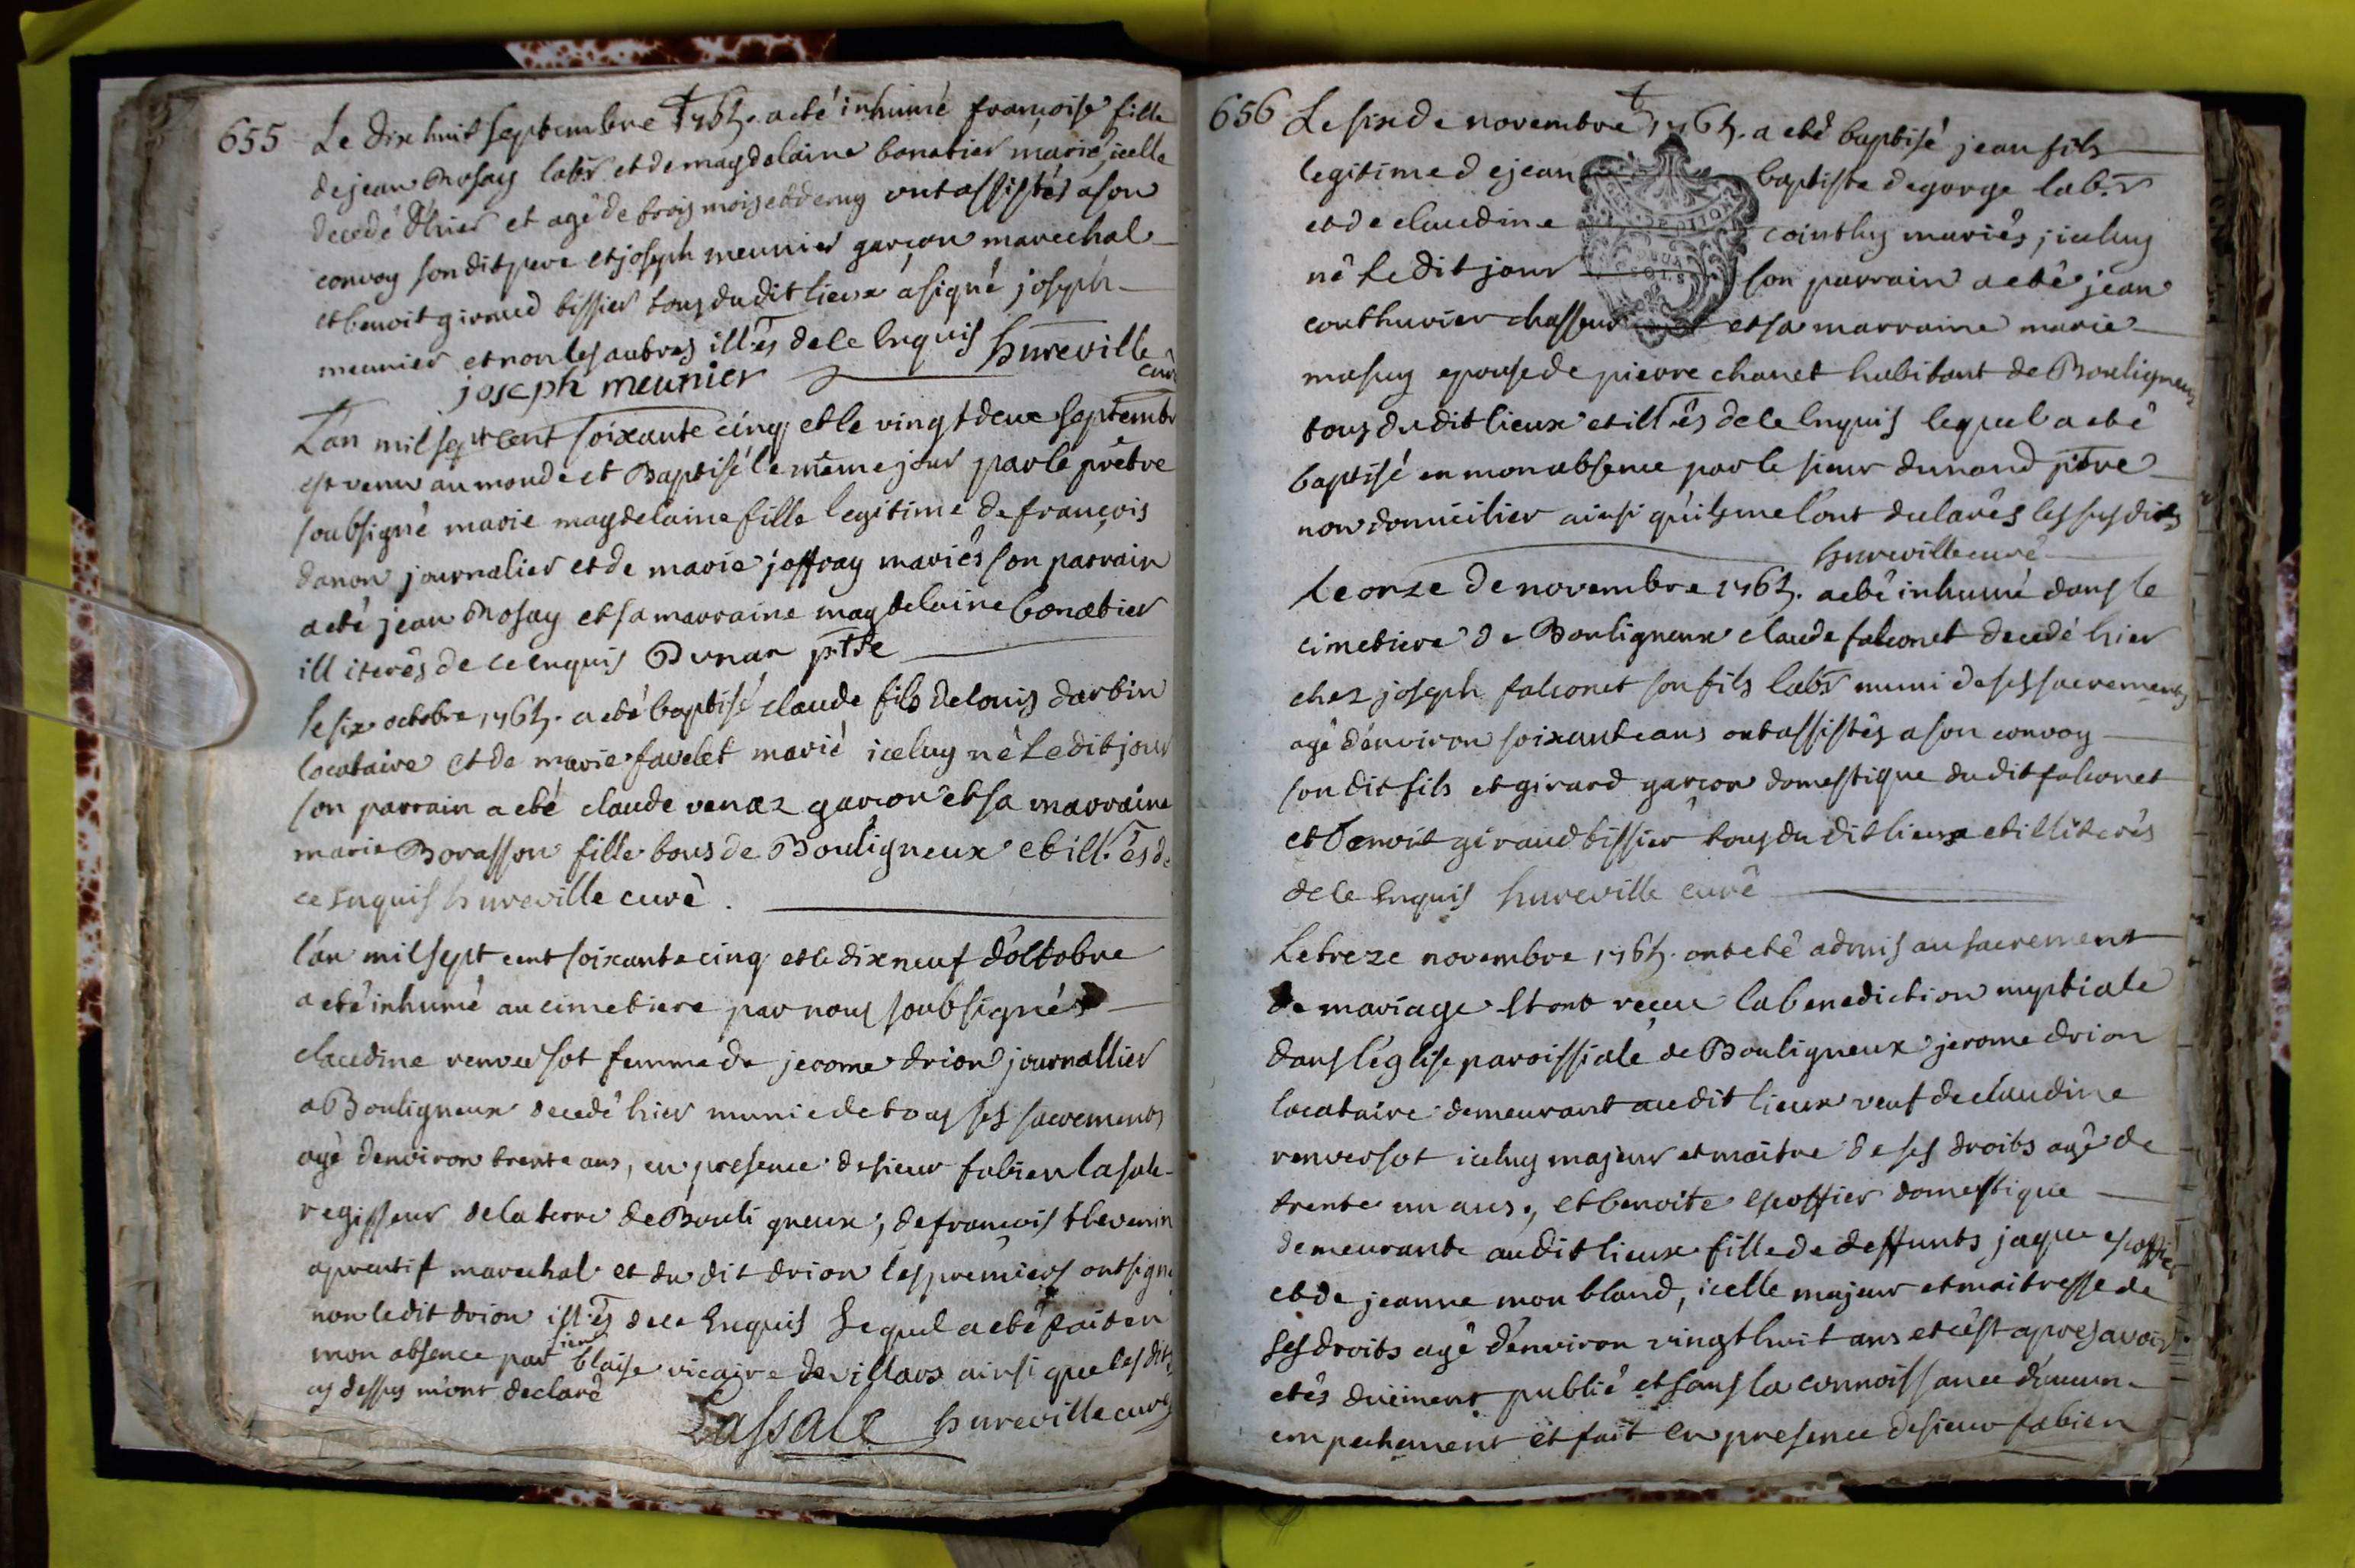 655 Le dix huit septembre 1765. a eté inhumé françoise fille
de jean Rosay labr et de magdelaine bonatier marié, icelle
decedé d'hier et agé de trois mois et demy ont assistés a son
convoy son dit pere et joseph meunier garçon marechal
et benoit giraud tissier tous du dit lieux a signé joseph
meunier et non les autres ill.és de ce Enquis hureville
curé
joseph meunier
L'an mil sept cent soixante cinq et le vingt deux septembr
est venu au monde et Baptisé le même jour par le prêtre
soubsigné marie magdelaine fille legitime de françois
danon journalier et de marie joffray mariés son parrain
a eté jean Rosay et sa marraine magdelaine bonatier
ill iterés de ce enquis Dunan ptre
le six octobre 1765. a eté baptisé claude fils de louis darbin
locataire et de marie favelet marié iceluy né le dit jour
son parrain a eté claude venaz garçon et sa marraine
marie Borasson fille tous de Bouligneux et ill.és de
ce Enquis hureville curé.
l'an mil sept cent soixante cinq et le dix neuf d'octobre
a eté inhumé au cimetiere par nous soubsignés
claudine renversot femme de jerome drion journallier
a Bouligneux decedé hier munie de tous ses sacrements
agé denviron trente ans, en presence de sieur fabien lasale
regisseur de la terre de Bouli gneux, de françois thevenin
aprentif marechal et du dit drion les premiers ont signé
non le dit drion ill.és de ce Enquis Lequel a eté fait en
mon absence par sieur blaise vicaire de villars ainsi que les dits
cy dessus m'ont declaré
Lassale hureville curé
656 Le six de novembre 1765. a eté baptisé jean fils
legitime de jean baptiste degorge lab.r
et de claudine cointhuy mariés, iceluy
né le dit jour son parrain a eté jean
couthurier chasseur et sa marraine marie
masuy epouse de pierre chanet habitant de Bouligneux
tous du dit lieux et ill.és de ce Enquis lequel a eté
baptisé en mon absence par le sieur dunand ptre
non domicilier ainsi qu'ils me l'ont declarés les susdits
hureville curé
le onze de novembre 1765. a eté inhumé dans le
cimetiere de Bouligneux claude falconet decedé hier
chez joseph falconet son fils labr muni de ses sacrements
agé d'environ soixante ans ont assistés a son convoy
son dit fils et girard garçon domestique du dit falconet
et benoit giraud tissier tous du dit lieux et illiterés
de ce Enquis hureville curé
Le treze novembre 1765. ont eté admis au sacrement
de mariage et ont reçue la benediction nuptiale
dans l'église paroissiale de Bouligneux jerome drion
locataire demeurant au dit lieux veuf de claudine
renversot iceluy majeur et maitre de ses droits agé de
trente un ans., et benoite escoffier domestique
demeurante au dit lieux fille de deffunts jaque escoffier
et de jeanne mon bland, icelle majeur et maitresse de
ses droits agé d'environ vingt huit ans et c'est apres avoir
etés duëment publié et sans la connoissance d'aucun
empechement et fait en presence de sieur fabien